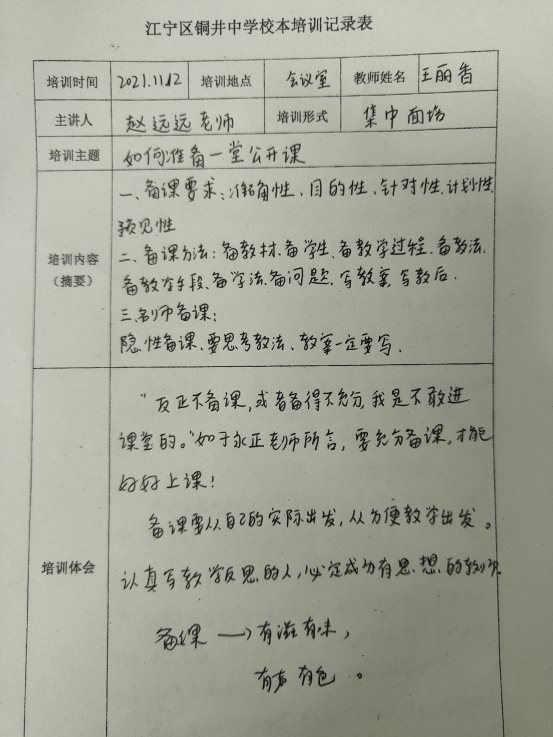 江宁区铜井中学校本培训记录表
培训时间 2021.11.12 培训地点 会议室 教师姓名 王丽香
主讲人 赵远远老师 培训形式 集中面培
培训主题 如何准备一堂公开课
一、备课要求:准确性、目的性、针对性、计划性、
预见性
培训内容
(摘要)
二、备课方法:备教材、备学生、备教学过程、备教法、
备教学手段、备学法、备问题、写教案、写教后.
三、名师备课:
隐性备课、要思考教法、教案一定要写.
培训体会
"反正不备课,或者备得不充分,我是不敢进
课堂的。"如于永正老师所言,要充分备课,才能
好好上课!
备课要从自己的实际出发,从方便教学出发。
认真写教学反思的人,必定成为有思想的教师.
备课 → 有滋有味,
有声有色。